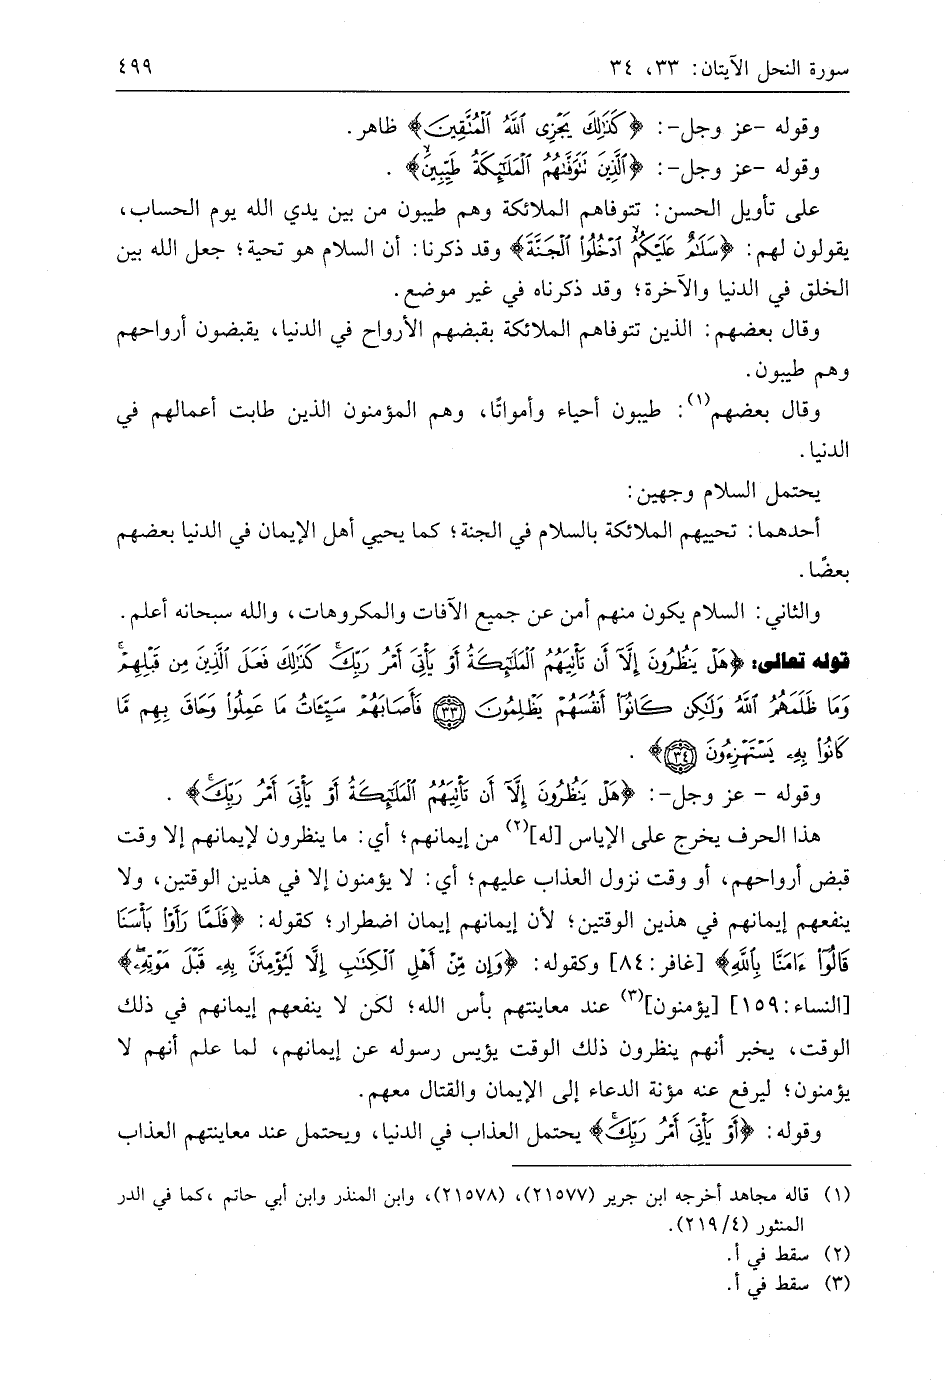 سورة النحل الآيتان: ٣٣، ٣٤ ٤٩٩
وقوله -عز وجل-: ﴿كَذَٰلِكَ يَجْزِى ٱللَّهُ ٱلْمُتَّقِينَ﴾ ظاهر.
وقوله -عز وجل-: ﴿ٱلَّذِينَ تَتَوَفَّىٰهُمُ ٱلْمَلَٰٓئِكَةُ طَيِّبِينَ﴾ .
على تأويل الحسن: تتوفاهم الملائكة وهم طيبون من بين يدي الله يوم الحساب،
يقولون لهم: ﴿سَلَٰمٌ عَلَيْكُمُ ٱدْخُلُوا۟ ٱلْجَنَّةَ﴾ وقد ذكرنا: أن السلام هو تحية؛ جعل الله بين
الخلق في الدنيا والآخرة؛ وقد ذكرناه في غير موضع.
وقال بعضهم: الذين تتوفاهم الملائكة بقبضهم الأرواح في الدنيا، يقبضون أرواحهم
وهم طيبون.
وقال بعضهم(١): طيبون أحياء وأمواتًا، وهم المؤمنون الذين طابت أعمالهم في
الدنيا.
يحتمل السلام وجهين:
أحدهما: تحييهم الملائكة بالسلام في الجنة؛ كما يحيي أهل الإيمان في الدنيا بعضهم
بعضًا.
والثاني: السلام يكون منهم أمن عن جميع الآفات والمكروهات، والله سبحانه أعلم.
قوله تعالى: ﴿هَلْ يَنظُرُونَ إِلَّآ أَن تَأْتِيَهُمُ ٱلْمَلَٰٓئِكَةُ أَوْ يَأْتِىَ أَمْرُ رَبِّكَ ۚ كَذَٰلِكَ فَعَلَ ٱلَّذِينَ مِن قَبْلِهِمْ ۚ
وَمَا ظَلَمَهُمُ ٱللَّهُ وَلَٰكِن كَانُوٓا۟ أَنفُسَهُمْ يَظْلِمُونَ ٣٣ فَأَصَابَهُمْ سَيِّـَٔاتُ مَا عَمِلُوا۟ وَحَاقَ بِهِم مَّا
كَانُوا۟ بِهِۦ يَسْتَهْزِءُونَ ٣٤﴾ .
وقوله - عز وجل-: ﴿هَلْ يَنظُرُونَ إِلَّآ أَن تَأْتِيَهُمُ ٱلْمَلَٰٓئِكَةُ أَوْ يَأْتِىَ أَمْرُ رَبِّكَ ۚ﴾ .
هذا الحرف يخرج على الإياس [له](٢) من إيمانهم؛ أي: ما ينظرون لإيمانهم إلا وقت
قبض أرواحهم، أو وقت نزول العذاب عليهم؛ أي: لا يؤمنون إلا في هذين الوقتين، ولا
ينفعهم إيمانهم في هذين الوقتين؛ لأن إيمانهم إيمان اضطرار؛ كقوله: ﴿فَلَمَّا رَأَوْا۟ بَأْسَنَا
قَالُوٓا۟ ءَامَنَّا بِٱللَّهِ﴾ [غافر:٨٤] وكقوله: ﴿وَإِن مِّنْ أَهْلِ ٱلْكِتَٰبِ إِلَّا لَيُؤْمِنَنَّ بِهِۦ قَبْلَ مَوْتِهِۦ ۖ﴾
[النساء:١٥٩] [يؤمنون](٣) عند معاينتهم بأس الله؛ لكن لا ينفعهم إيمانهم في ذلك
الوقت، يخبر أنهم ينظرون ذلك الوقت يؤيس رسوله عن إيمانهم، لما علم أنهم لا
يؤمنون؛ ليرفع عنه مؤنة الدعاء إلى الإيمان والقتال معهم.
وقوله: ﴿أَوْ يَأْتِىَ أَمْرُ رَبِّكَ ۚ﴾ يحتمل العذاب في الدنيا، ويحتمل عند معاينتهم العذاب
(١) قاله مجاهد أخرجه ابن جرير (٢١٥٧٧)، (٢١٥٧٨)، وابن المنذر وابن أبي حاتم ،كما في الدر
المنثور (٢١٩/٤).
(٢) سقط في أ.
(٣) سقط في أ.